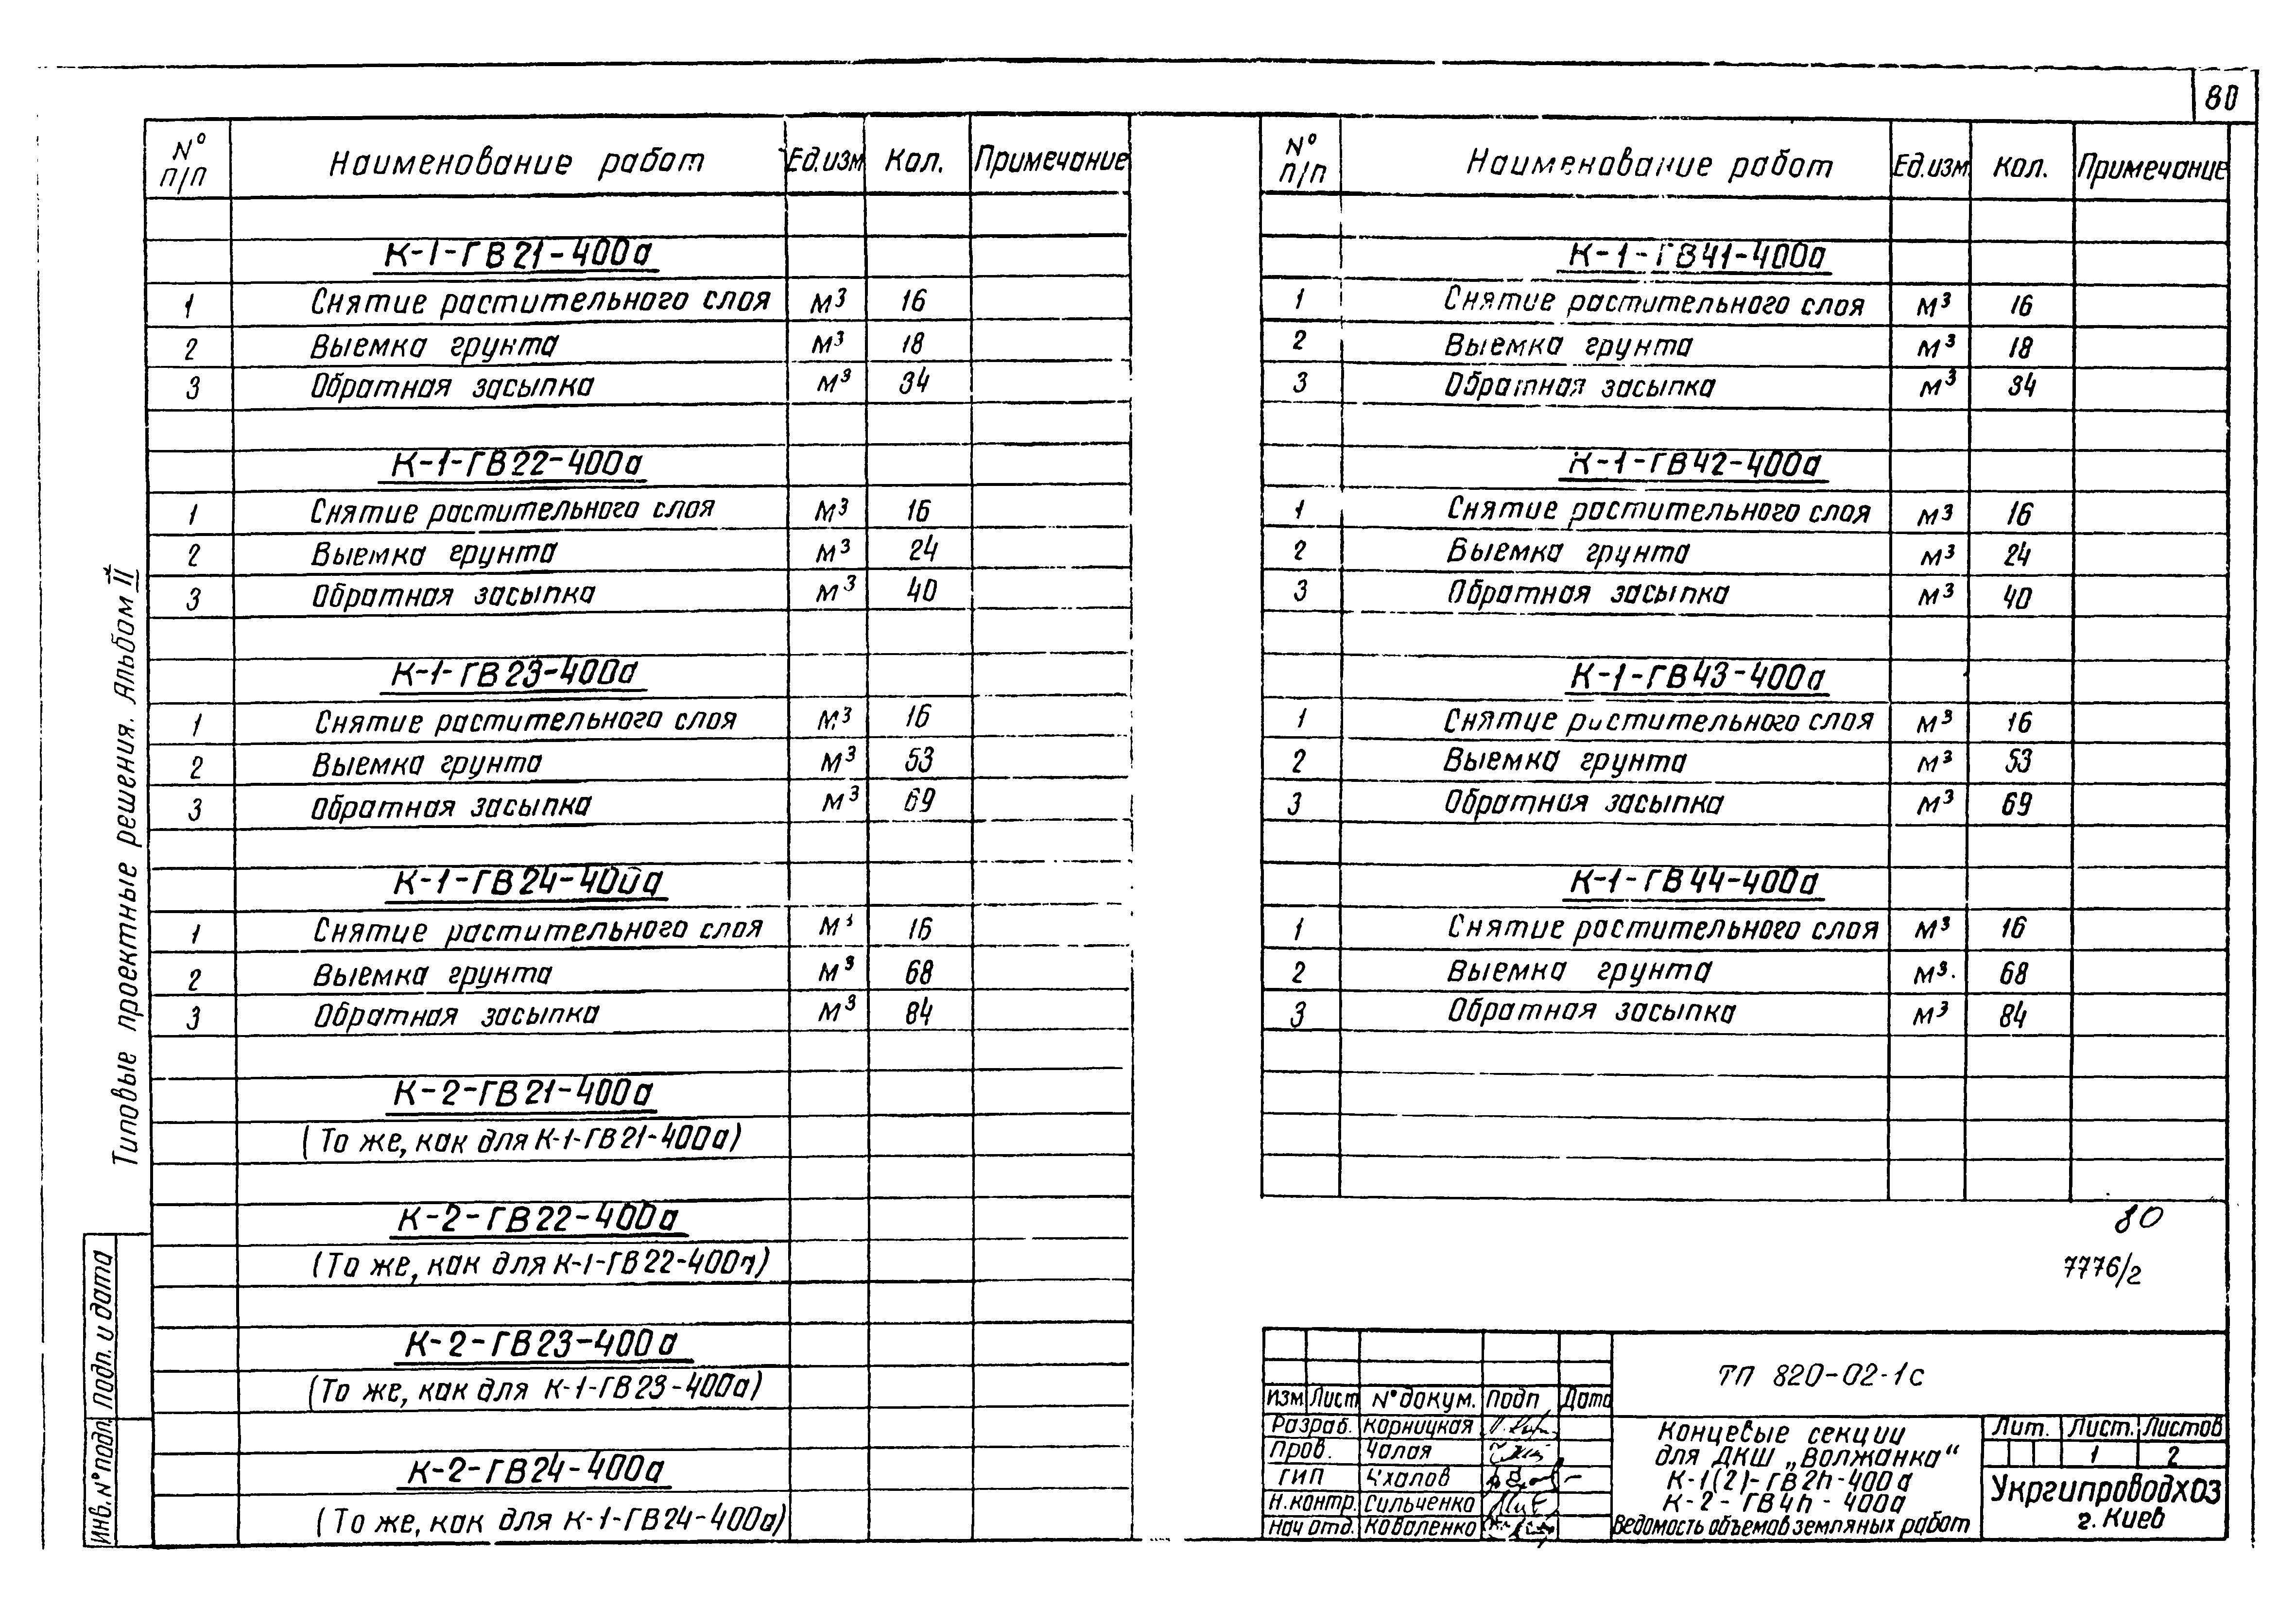 80
Типовые проектные решения. Альбом II
Инв. № подл. Подп. и дата
№ п/п Наименование работ Ед.изм Кол. Примечание
К-1-ГВ21-400а
1 Снятие растительного слоя м³ 16
2 Выемка грунта м³ 18
3 Обратная засыпка м³ 34
К-1-ГВ22-400а
1 Снятие растительного слоя м³ 16
2 Выемка грунта м³ 24
3 Обратная засыпка м³ 40
К-1-ГВ23-400а
1 Снятие растительного слоя м³ 16
2 Выемка грунта м³ 53
3 Обратная засыпка м³ 69
К-1-ГВ24-400а
1 Снятие растительного слоя м³ 16
2 Выемка грунта м³ 68
3 Обратная засыпка м³ 84
К-2-ГВ21-400а
(То же, как для К-1-ГВ21-400а)
К-2-ГВ22-400а
(То же, как для К-1-ГВ22-400а)
К-2-ГВ23-400а
(То же, как для К-1-ГВ23-400а)
К-2-ГВ24-400а
(То же, как для К-1-ГВ24-400а)
№ п/п Наименование работ Ед.изм Кол. Примечание
К-1-ГВ41-400а
1 Снятие растительного слоя м³ 16
2 Выемка грунта м³ 18
3 Обратная засыпка м³ 34
К-1-ГВ42-400а
1 Снятие растительного слоя м³ 16
2 Выемка грунта м³ 24
3 Обратная засыпка м³ 40
К-1-ГВ43-400а
1 Снятие растительного слоя м³ 16
2 Выемка грунта м³ 53
3 Обратная засыпка м³ 69
К-1-ГВ44-400а
1 Снятие растительного слоя м³ 16
2 Выемка грунта м³ 68
3 Обратная засыпка м³ 84
80
7776/2
ТП 820-02-1с
Изм Лист № докум. Подп Дата
Разраб. Корницкая
Пров. Чалая
ГИП
Н.контр. Сильченко
Нач отд. Коваленко
Концевые секции
для ДКШ „Волжанка“
К-1(2)-ГВ2n-400а
К-2-ГВ4n-400а
Ведомость объемов земляных работ
Лит. Лист. Листов
1 2
Укргипроводхоз
г. Киев